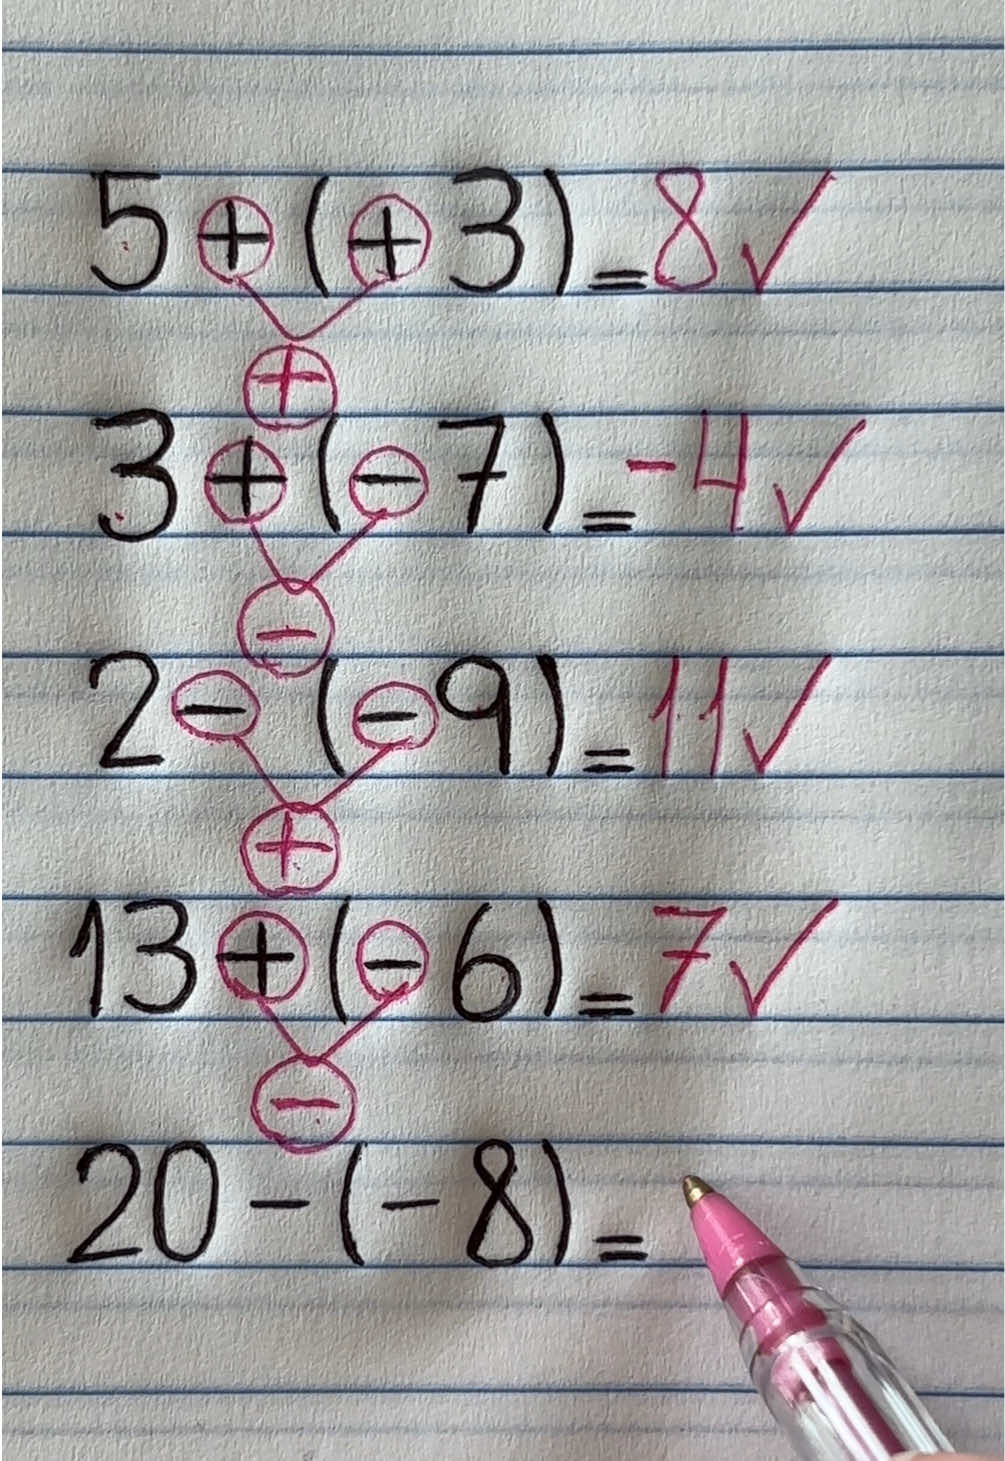 5 + (+3) = 8 ✓
+
3 + (-7) = -4 ✓
-
2 - (-9) = 11 ✓
+
13 + (-6) = 7 ✓
-
20 - (-8) =